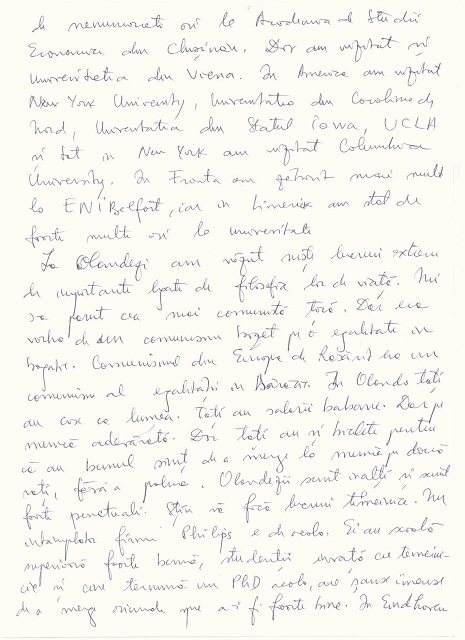 de nenumărate ori la Academia de Studii
Economice din Chișinău. Dar am vizitat și
Universitatea din Viena. În America am vizitat
New York University, Universitatea din Carolina de
Nord, Universitatea din Statul Iowa, UCLA
și tot in New York am vizitat Columbia
University. În Franța am petrecut mai mult
la ENI Belfort, iar in Limerick am stat de
foarte multe ori la universitate
La Olandezi am văzut niște lucruri extrem
de importante legate de filosofia lor de viață. Mi
s-a părut cea mai comunistă țară. Dar era
vorba de un comunism bazat pe o egalitate in
bogăție. Comunismul din Europa de Răsărit era un
comunism al egalității in Sărăcie. În Olanda toți
au case ca lumea. Toți au salarii babane. Dar pe
muncă adevărată. Dar toți au și biciclete pentru
că au bunul simț de a merge la muncă pe două
roți, fără a polua. Olandezii sunt inalți și sunt
foarte punctuali. Știu să facă lucruri temeinice. Nu
intamplator firma Philips e de acolo. Ei au școală
superioară foarte bună, studenții invață cu temeini-
cie și care termină un PhD acolo, are șanse imense
de a merge oriunde spre a-i fi foarte bine. In Eindhoven